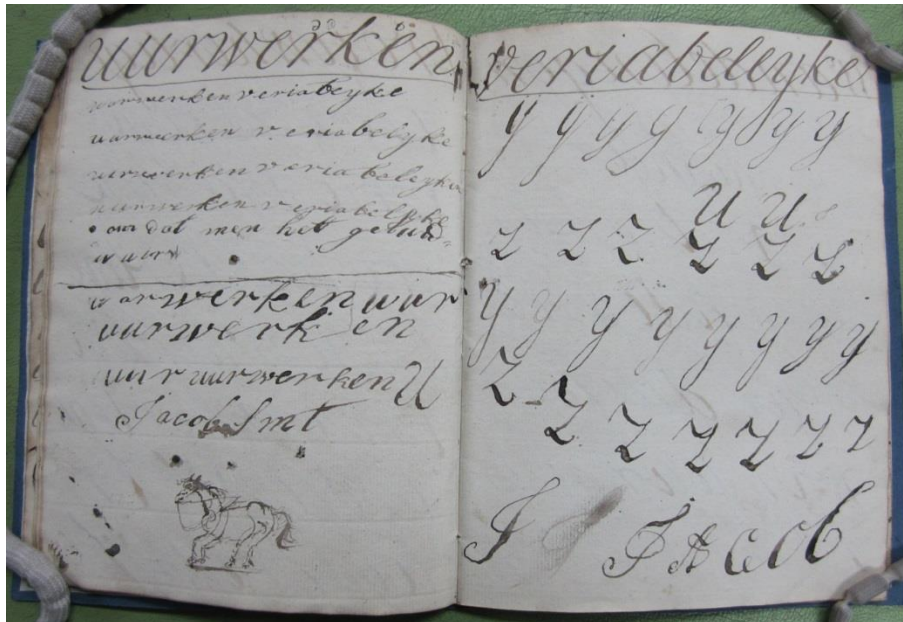 uurwerken
uurwerken veriabelyke
uurwerken veriabelyke
uurwerken veriabeleyke
uurwerken veriabelyke
om dat men het geluid
uurwerken uur
uurwerken
uur uurwerken U
Jacob Smt
veriabeleyke
y y y y y y y
U U
Z Z Z Z Z Z
y y y y y y y y
Z
Z Z Z Z Z Z
J Jacob